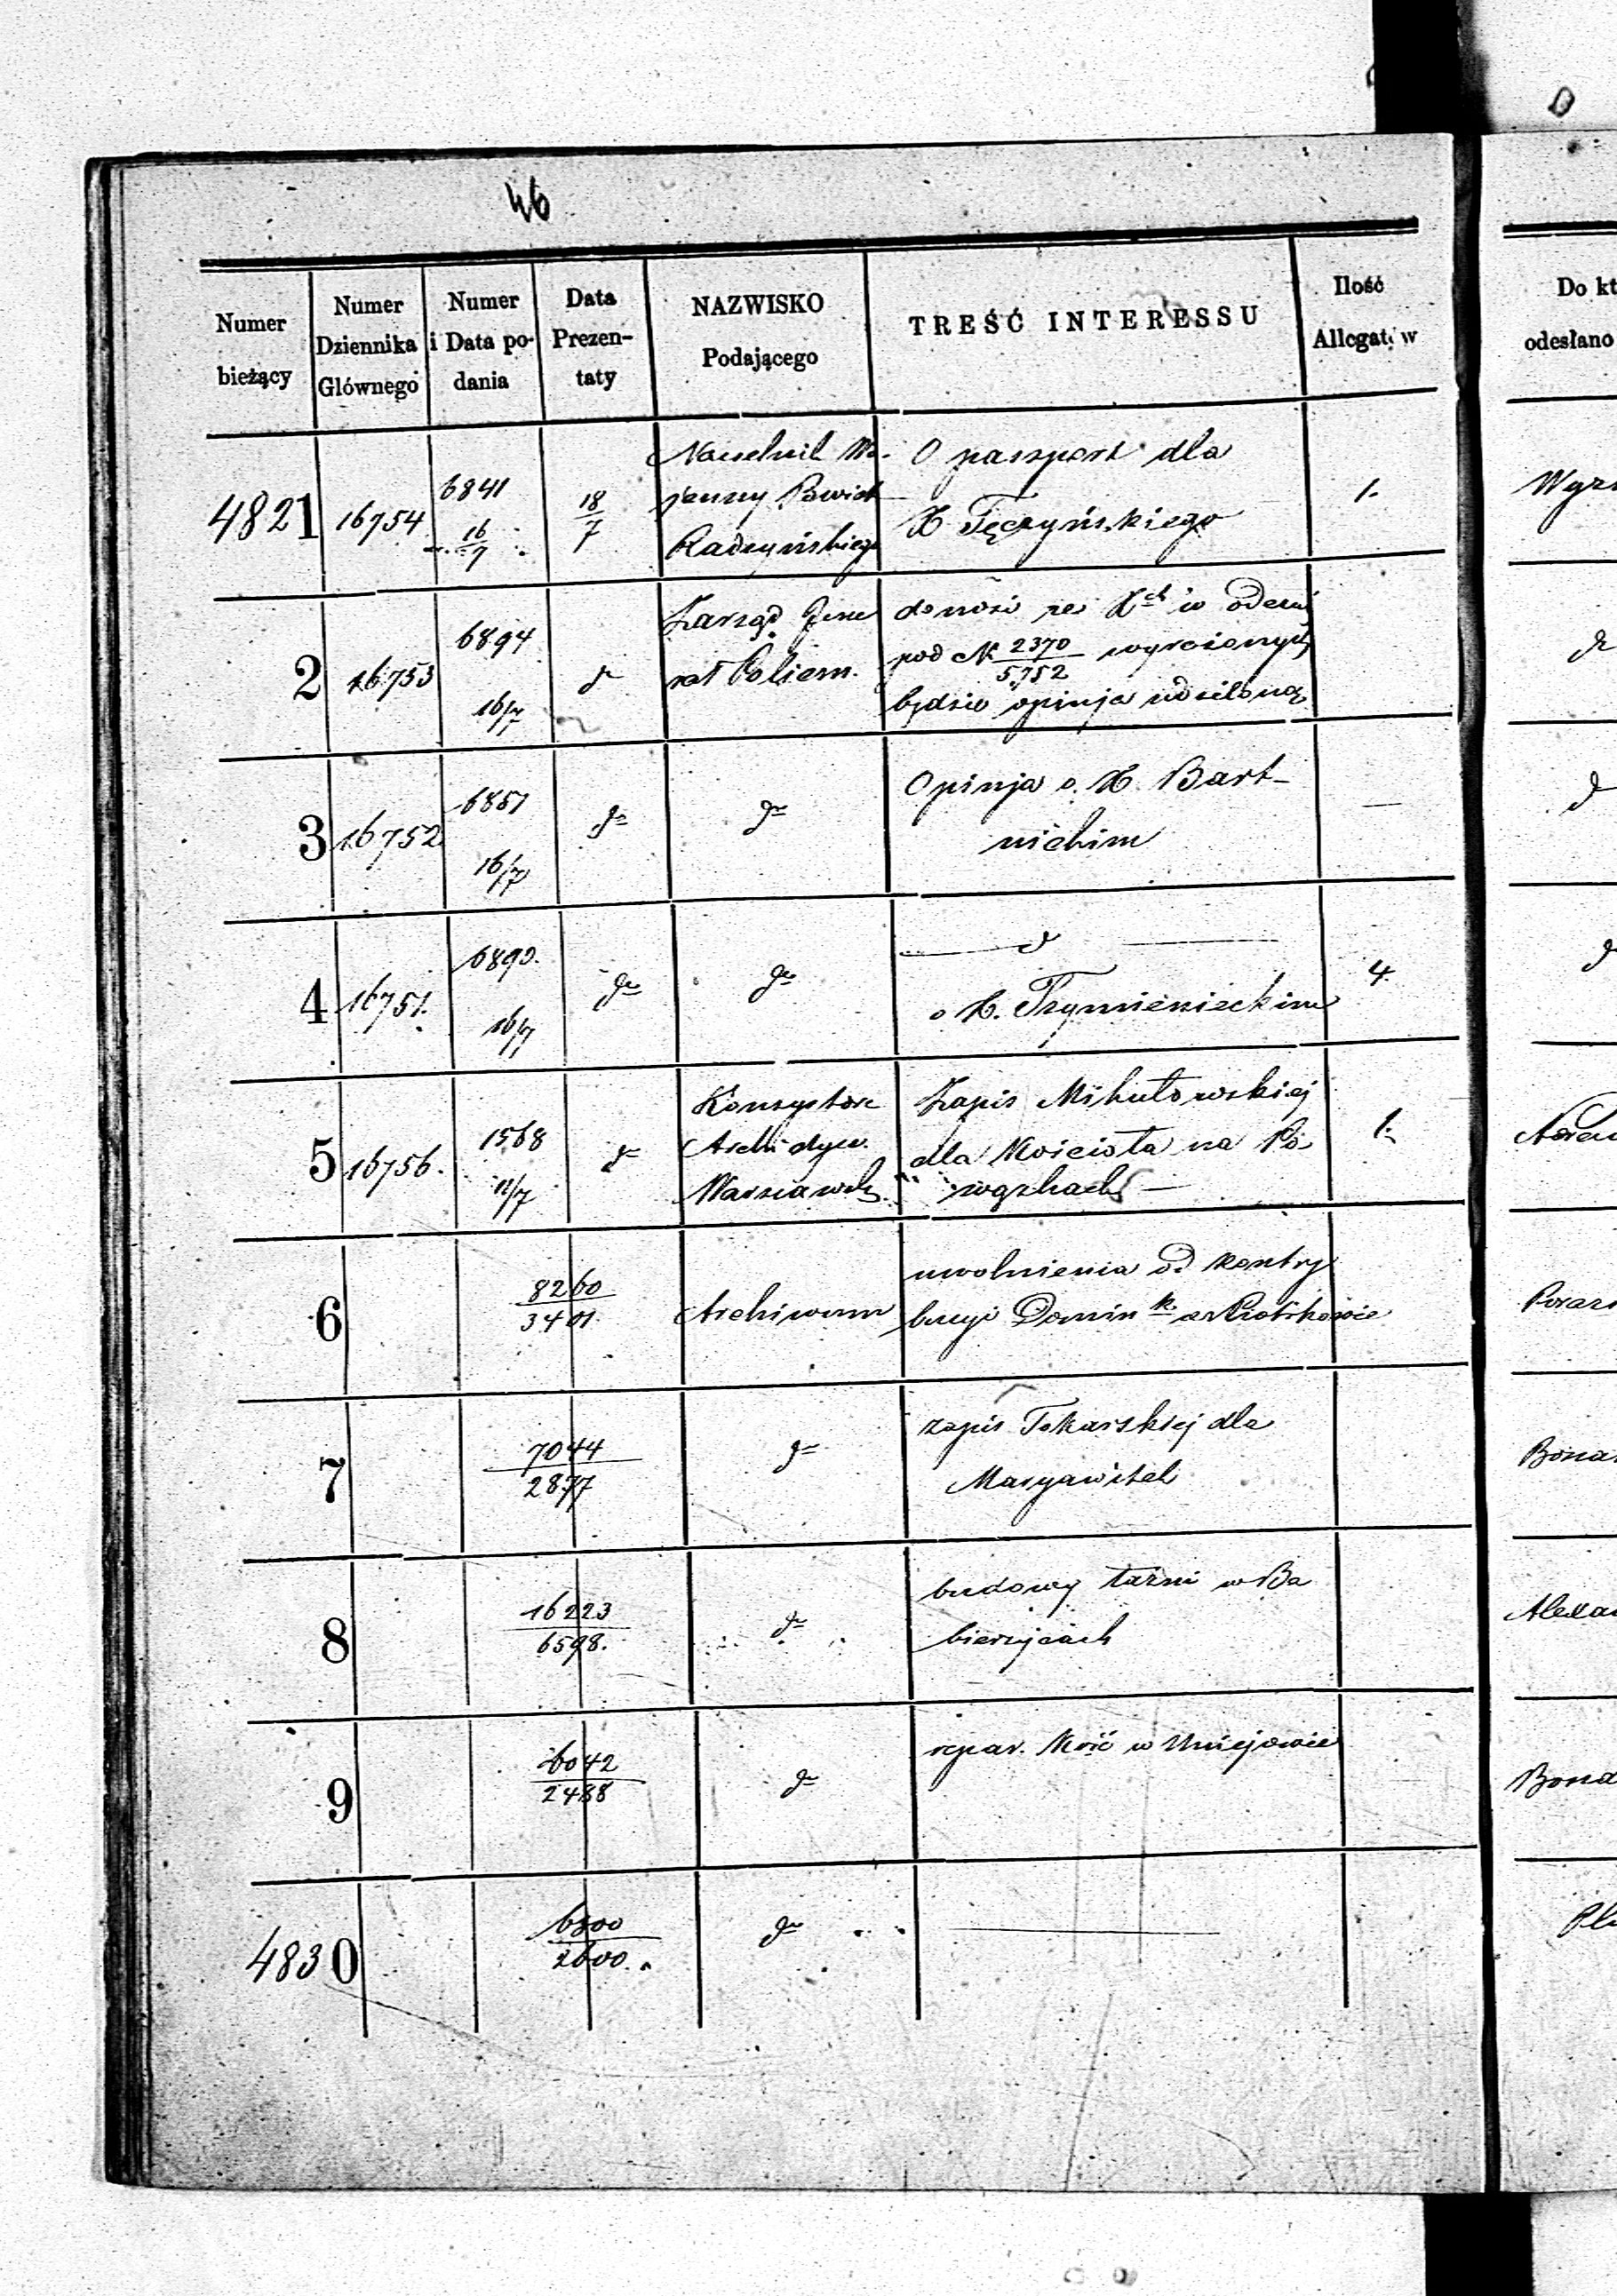 46
Numer bieżący
Numer Dziennika Głównego
Numer i Data podania
Data Prezentaty
NAZWISKO Podającego
TREŚĆ INTERESSU
Ilość Allegatów
Do kt
odesłano
4821 16754 6841 16/7 18/7
Naczelnik Wo-
jenny Powiat
Radzyńskiego
O passport dla
X. Tęczyńskiego
1.
Wyzn
2 16753 6894 16/7 dº
Zarząd Gene
rał Policm.
donosi że Xch w odezwi
pod N 2370/5752 wyrażonych
będzie opinja udzieloną
dº
3 16752 6851 16/7 dº dº
Opinja o X. Bart-
nickim
—
dº
4 16751. 6890. 16/7 dº dº
dº
o X. Tzymienieckim
4.
dº
5 16756. 1568 11/7 dº
Konsystorz
Archidyec.
Warszawsk.
Zapis Mikułowskiej
dla Kościoła na Po-
wązkach —
1.
6 8260/3401.
Archiwum
uwolnienia od kontry
bucyi Domink. w Piotrkowie
7 7044/2877 dº
zapis Tokarskiej dla
Maryawitek
Bona
8 16223/6598. dº
budowy łaźni w Ba
bierzycach
Alexa
9 6042/2488 dº
repar. Kość w Uniejowie
Bona
4830 6300/2600. dº